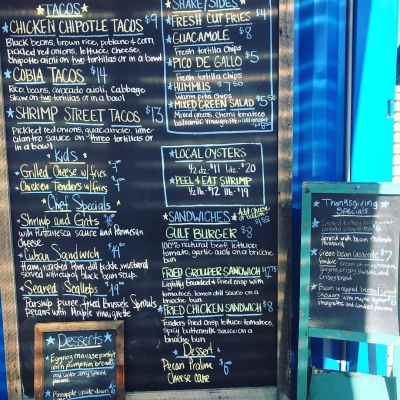 TACOS
CHICKEN CHIPOTLE TACOS $9
Black beans, brown rice, poblano & corn,
pickled red onions, lettuce, cheese,
chipotle aioli on two tortillas or in a bowl
COBIA TACOS $14
Rice, beans, avocado aioli, cabbage
slaw on two tortillas or in a bowl
SHRIMP STREET TACOS $13
Pickled red onions, guacamole, lime
cilantro sauce on three tortillas or
in a bowl
Kids
Grilled Cheese w/fries
Chicken Tenders w/fries
Chef Specials
Shrimp and Grits
with Puttanesca sauce and Parmesan
Cheese
Cuban Sandwich
Ham, roasted pork, dill pickle, mustard
served with a cup of black bean soup
Seared Scallops $19
Parsnip puree, fried Brussels Sprouts
pecans with Maple vinaigrette
Desserts
Eggnog mousse parfait
with pumpkin bread
Pineapple upside down
SHARE/SIDES
FRESH CUT FRIES $4
GUACAMOLE $8
Fresh tortilla chips
PICO DE GALLO $5
Fresh tortilla chips
HUMMUS
warm pita chips
MIXED GREEN SALAD
Mixed greens, cherry tomatoes,
balsamic vinaigrette
LOCAL OYSTERS
1/2 dz. $11 1 dz. $20
PEEL & EAT SHRIMP
1/2 lb. $12 lb. $19
SANDWICHES
GULF BURGER $8
100% natural beef, lettuce,
tomato, garlic aioli on a brioche
bun
FRIED GROUPER SANDWICH
Lightly breaded & fried crisp with
tomatoes, lemon dill sauce on a
brioche bun
FRIED CHICKEN SANDWICH $8
Tenders fried crisp, lettuce, tomatoes,
spicy buttermilk sauce on a
brioche bun
Dessert
Pecan Praline
Cheese cake $6
Thanksgiving
Specials
Green Bean Casserole $7